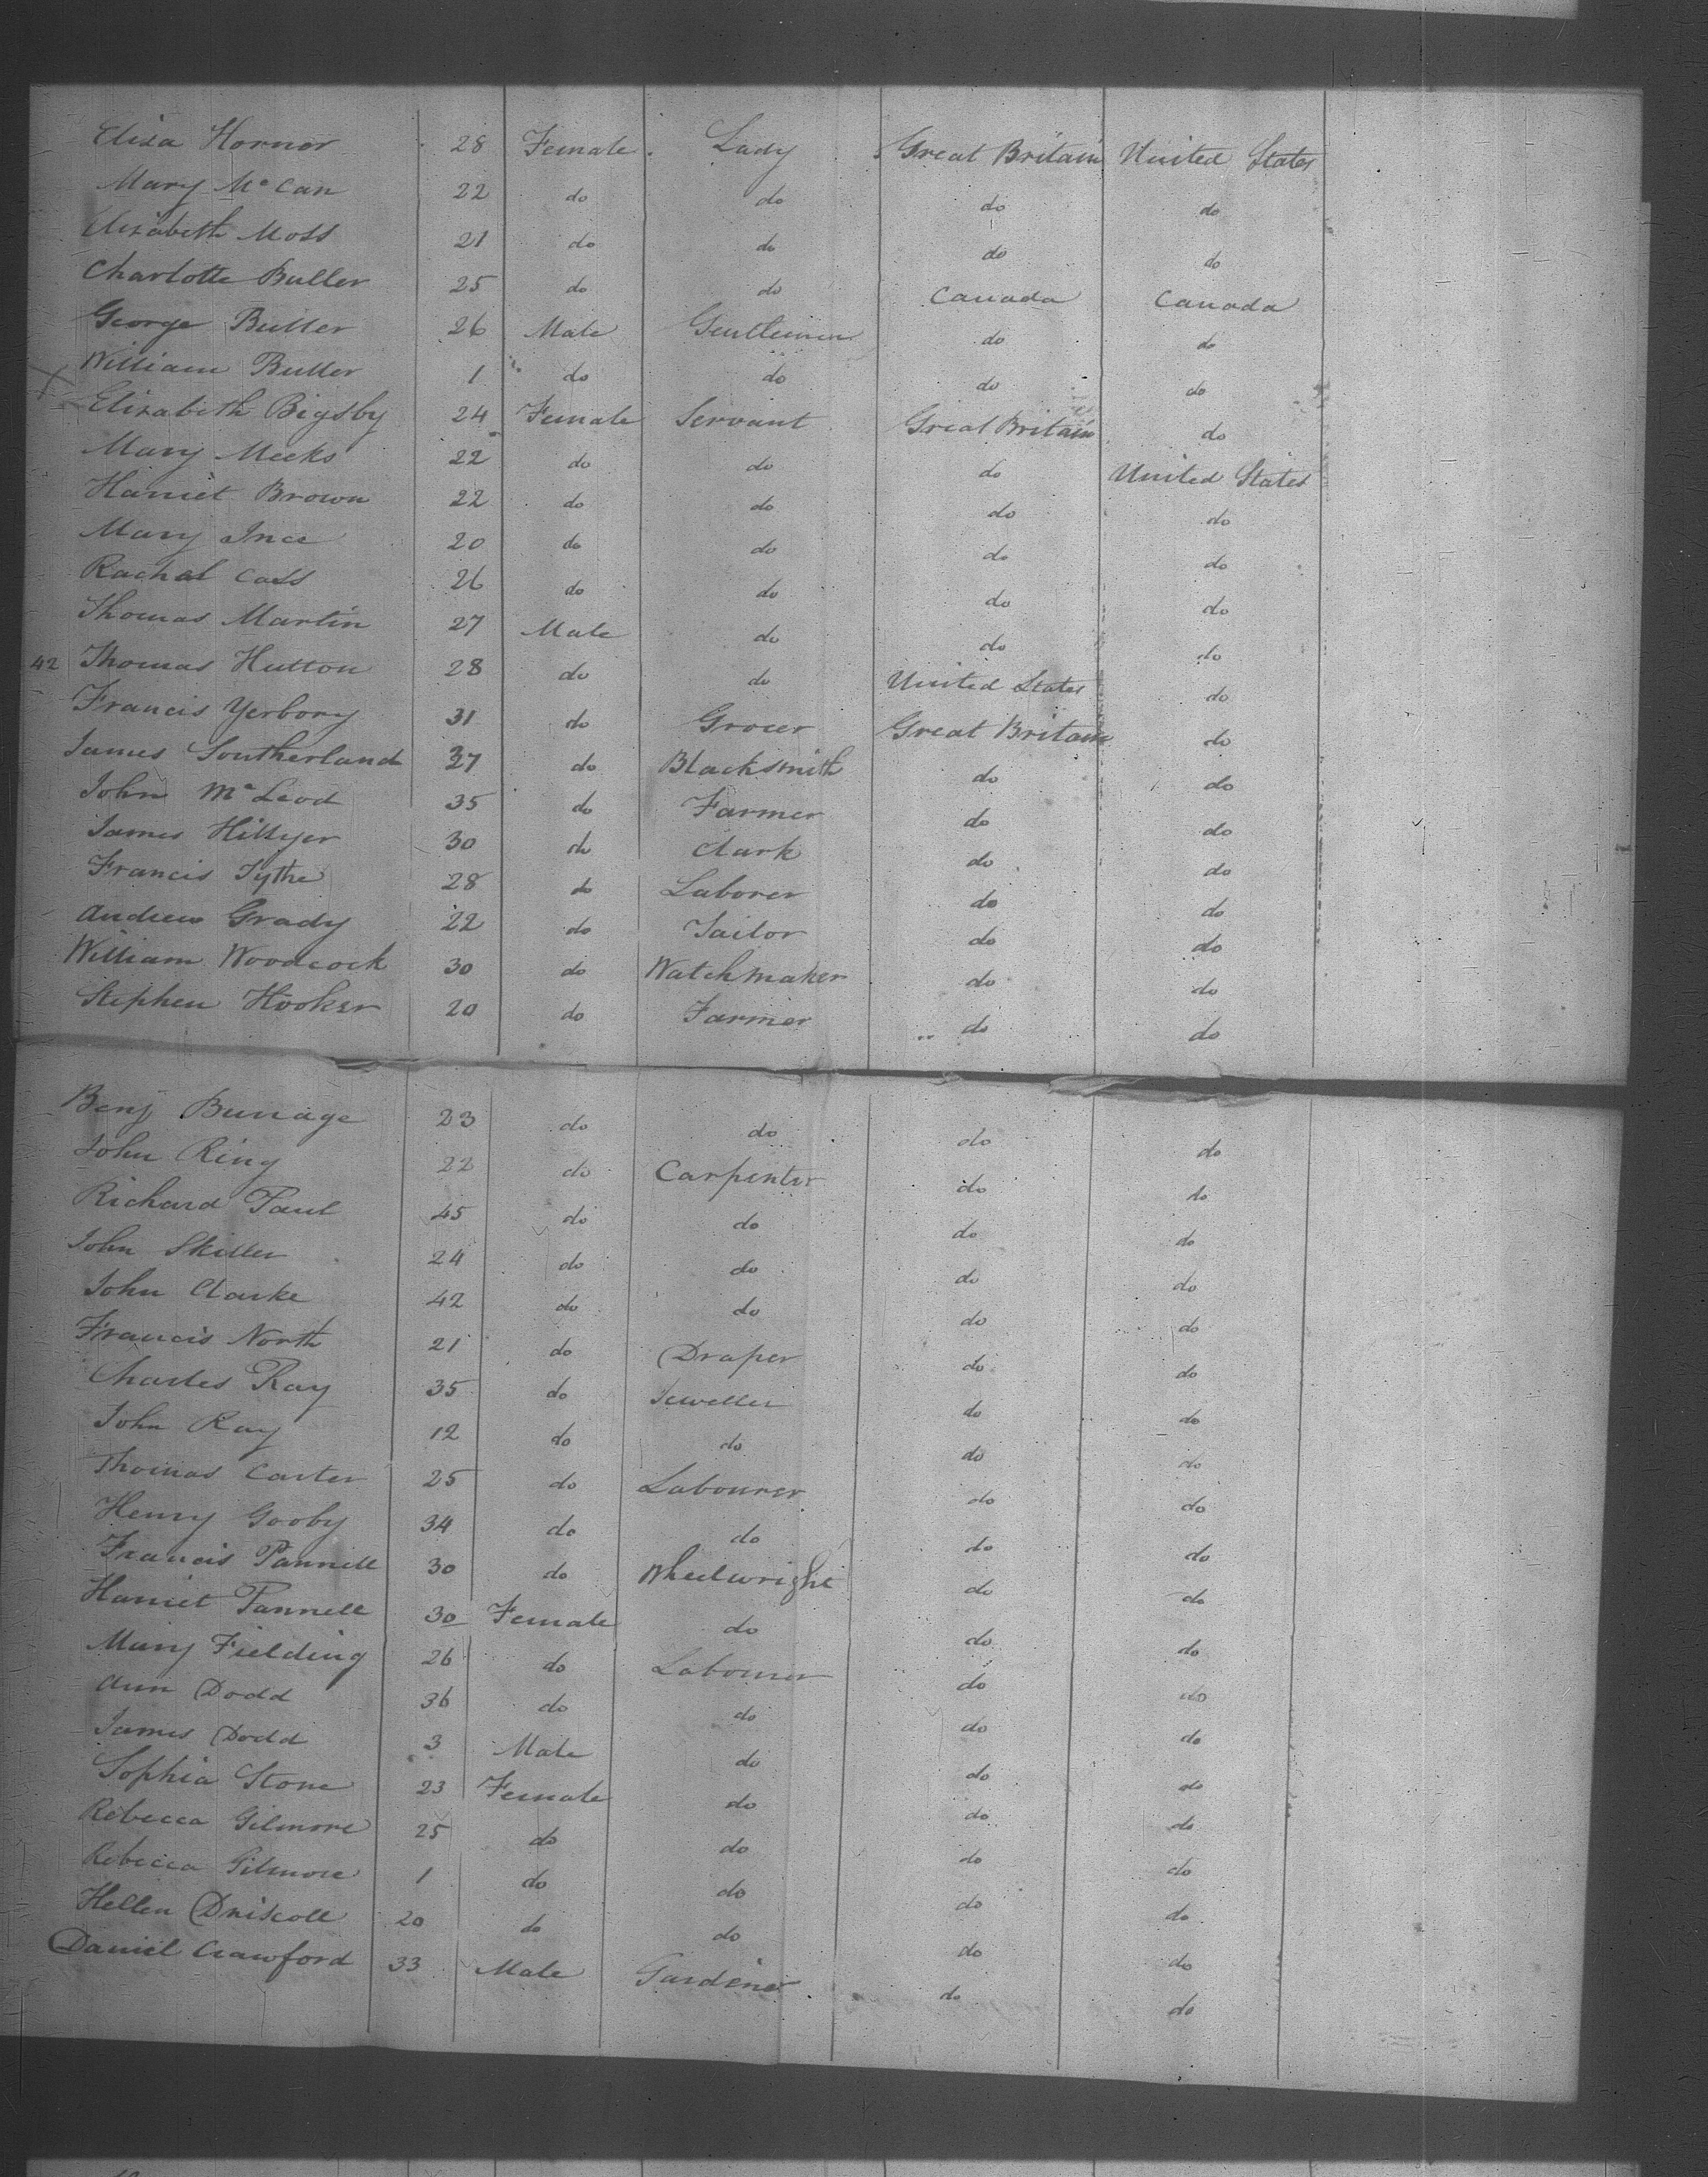 Eliza Hornor 28 Female Lady Great Britain United States
Mary McCan 22 do do do do
Elizabeth Moss 21 do do do do
Charlotte Buller 25 do do Canada Canada
George Buller 26 Male Gentlemen do do
William Buller 1 do do do do
Elizabeth Bigsby 24 Female Servant Great Britain do
Mary Meeks 22 do do do United States
Harriet Brown 22 do do do do
Mary Ince 20 do do do do
Rachal Cass 26 do do do do
Thomas Martin 27 Male do do do
42 Thomas Hutton 28 do do United States do
Francis Yerbory 31 do Grocer Great Britain do
James Southerland 37 do Blacksmith do do
John McLeod 35 do Farmer do do
James Hillyer 30 do Clark do do
Francis Tythe 28 do Laborer do do
Andrew Grady 22 do Tailor do do
William Woodcock 30 do Watchmaker do do
Stephen Hooker 20 do Farmer do do
Benj Burrage 23 do do do do
John Ring 22 do Carpenter do do
Richard Paul 45 do do do do
John Skiller 24 do do do do
John Clarke 42 do do do do
Francis North 21 do Draper do do
Charles Ray 35 do Jeweller do do
John Ray 12 do do do do
Thomas Carter 25 do Labourer do do
Henry Gooby 34 do do do do
Francis Pannell 30 do Wheelwright do do
Harriet Pannell 30 Female do do do
Mary Fielding 26 do Labourer do do
Ann Dodd 36 do do do do
James Dodd 3 Male do do do
Sophia Stone 23 Female do do do
Rebecca Gilmore 25 do do do do
Rebecca Gilmore 1 do do do do
Hellen Driscoll 20 do do do do
Daniel Crawford 33 Male Gardener do do